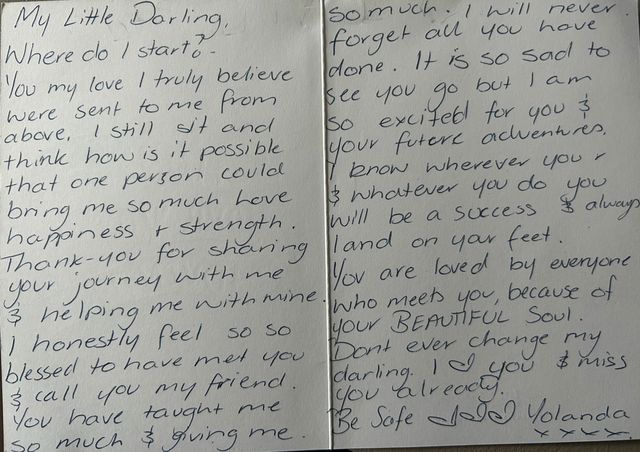 My Little Darling,
Where do I start? -
You my love I truly believe
were sent to me from
above. I still sit and
think how is it possible
that one person could
bring me so much Love
happiness + strength.
Thank-you for sharing
your journey with me
& helping me with mine.
I honestly feel so so
blessed to have met you
& call you my friend.
You have taught me
so much & giving me.
so much. I will never
forget all you have
done. It is so sad to
see you go but I am
so excited for you &
your future adventures.
I know wherever you r
& whatever you do you
will be a success & always
land on your feet.
You are loved by everyone
who meets you, because of
your BEAUTIFUL Soul.
Dont ever change my
darling. I ♡ you & miss
you already.
Be Safe ♡♡♡ Yolanda
x x x x